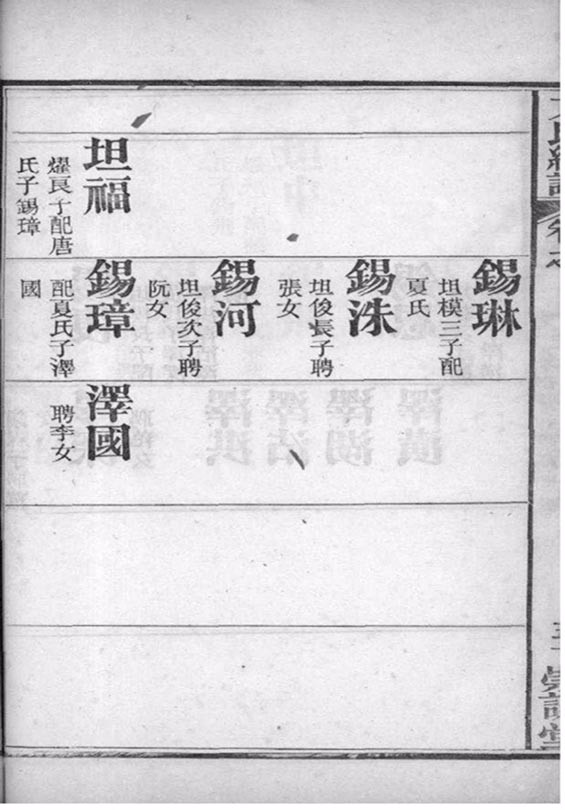 坦福
燿良子配唐
氏子錫璋
錫琳
坦模三子配
夏氏
錫洙
坦俊長子聘
張女
錫河
坦俊次子聘
阮女
錫璋
配夏氏子澤
國
澤國
聘李女